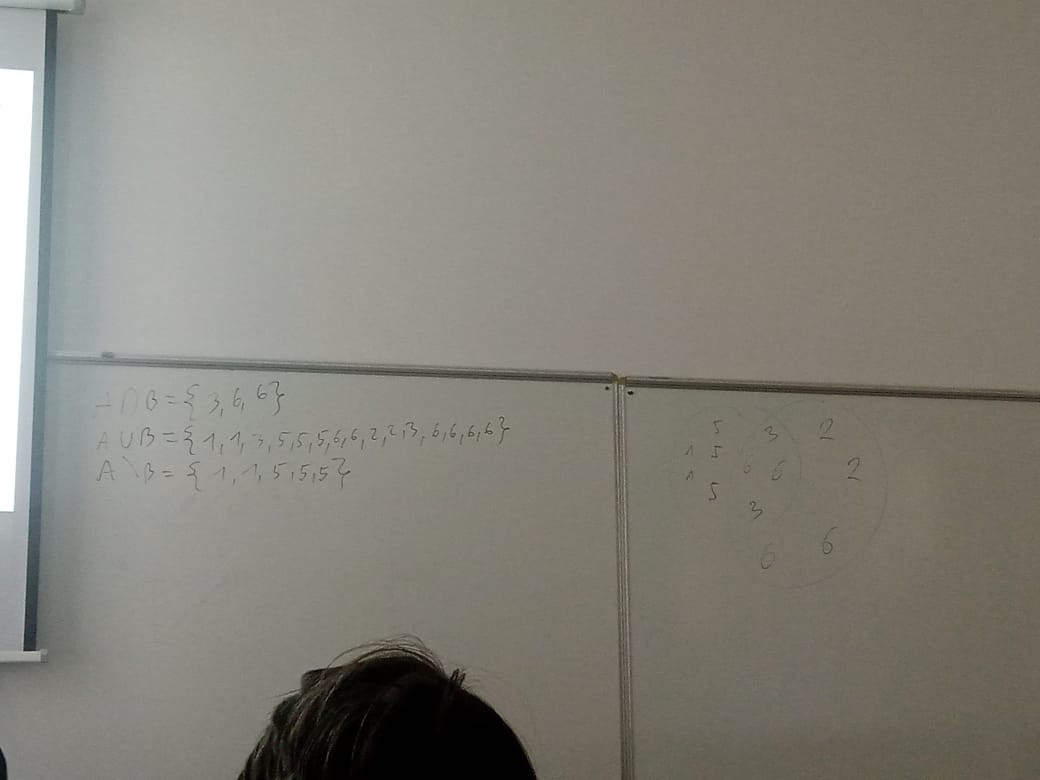 A∩B={3,6,6}
A∪B={1,1,3,5,5,5,6,6,2,2,3,6,6,6,6}
A\B={1,1,5,5,5}
5 3 2
1 5
1 6 6 2
5 3
6 6